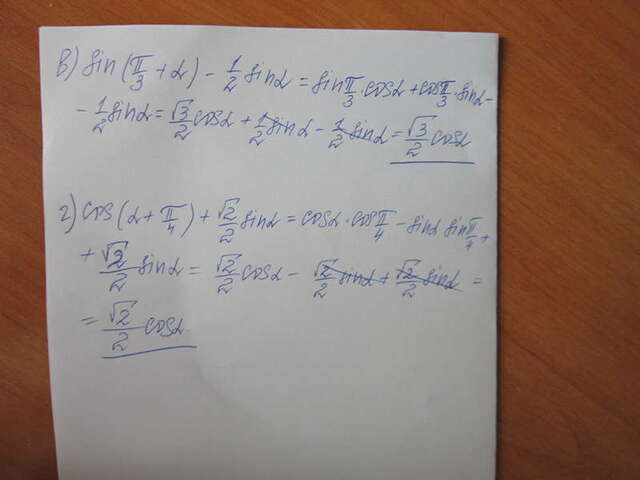 в) sin(π/3 + α) - 1/2 sinα = sin π/3 · cosα + cos π/3 · sinα -
- 1/2 sinα = √3/2 cosα + 1/2 sinα - 1/2 sinα = √3/2 cosα
г) cos(α + π/4) + √2/2 sinα = cosα · cos π/4 - sinα sin π/4 +
+ √2/2 sinα = √2/2 cosα - √2/2 sinα + √2/2 sinα =
= √2/2 cosα